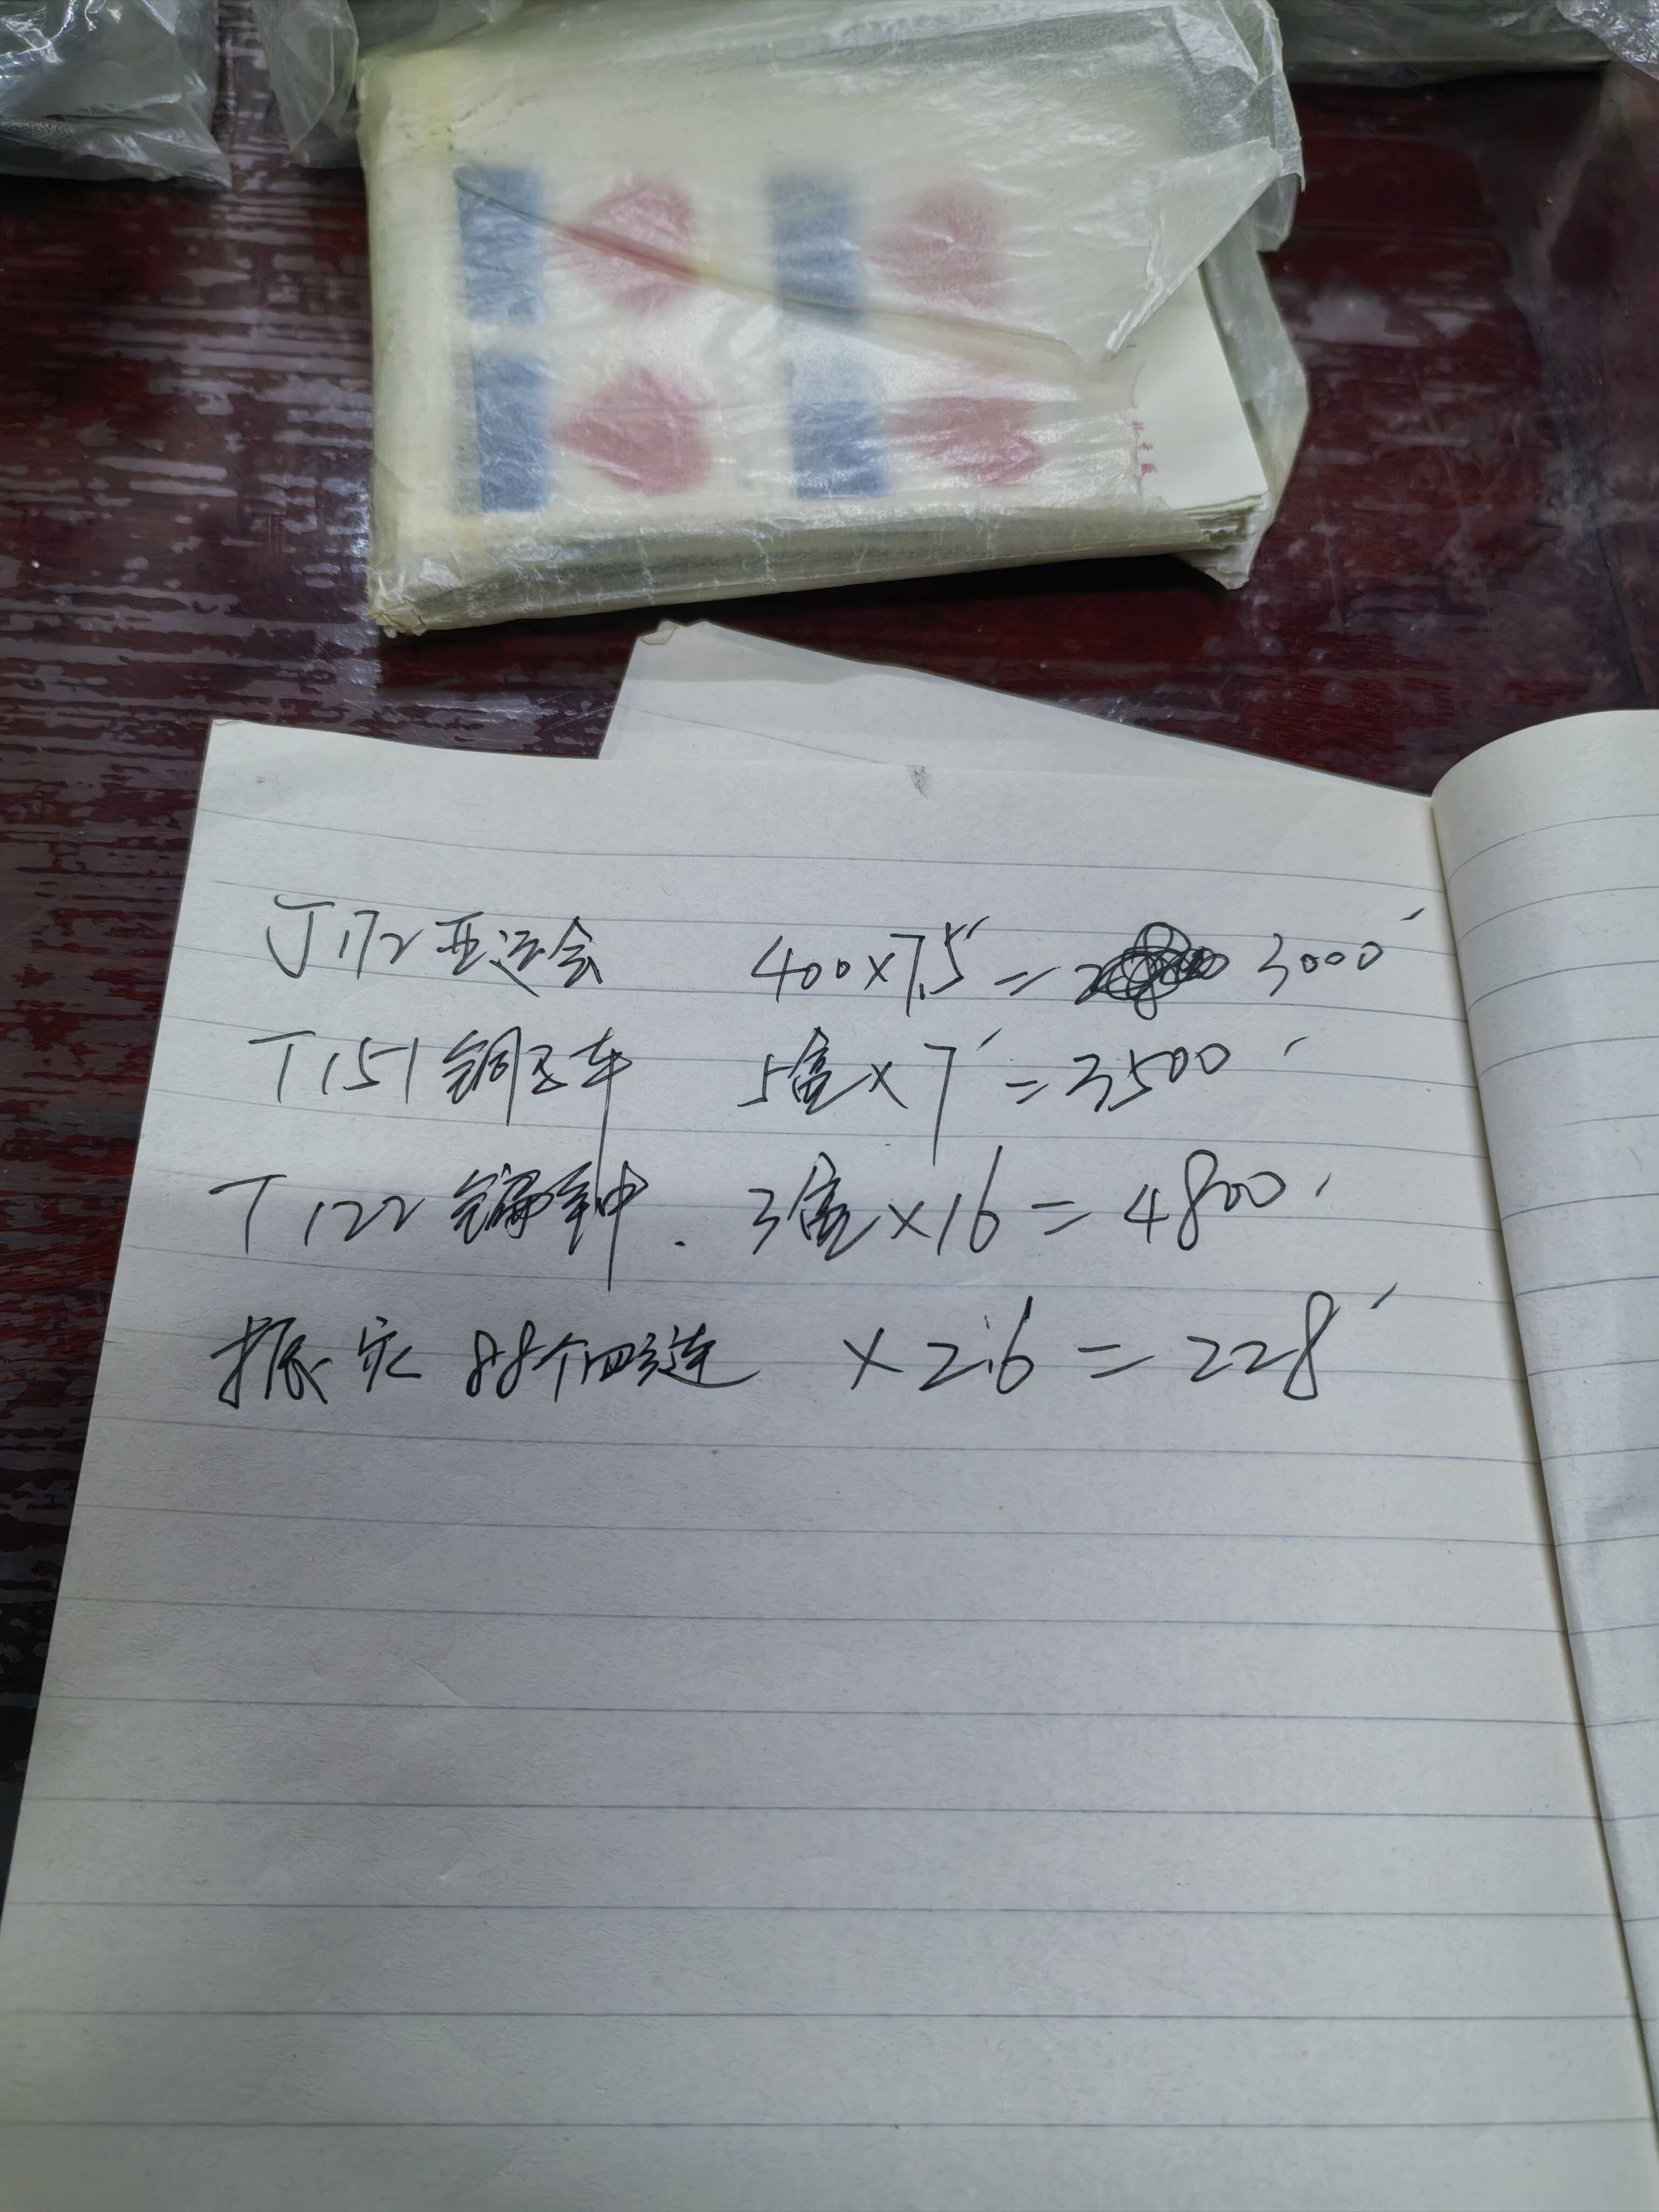 J172亚运会 400×7.5=3000
T151铜马车 5盒×7=3500
T122编钟. 3盒×16=4800
振灾 88个四连 ×2.6=228